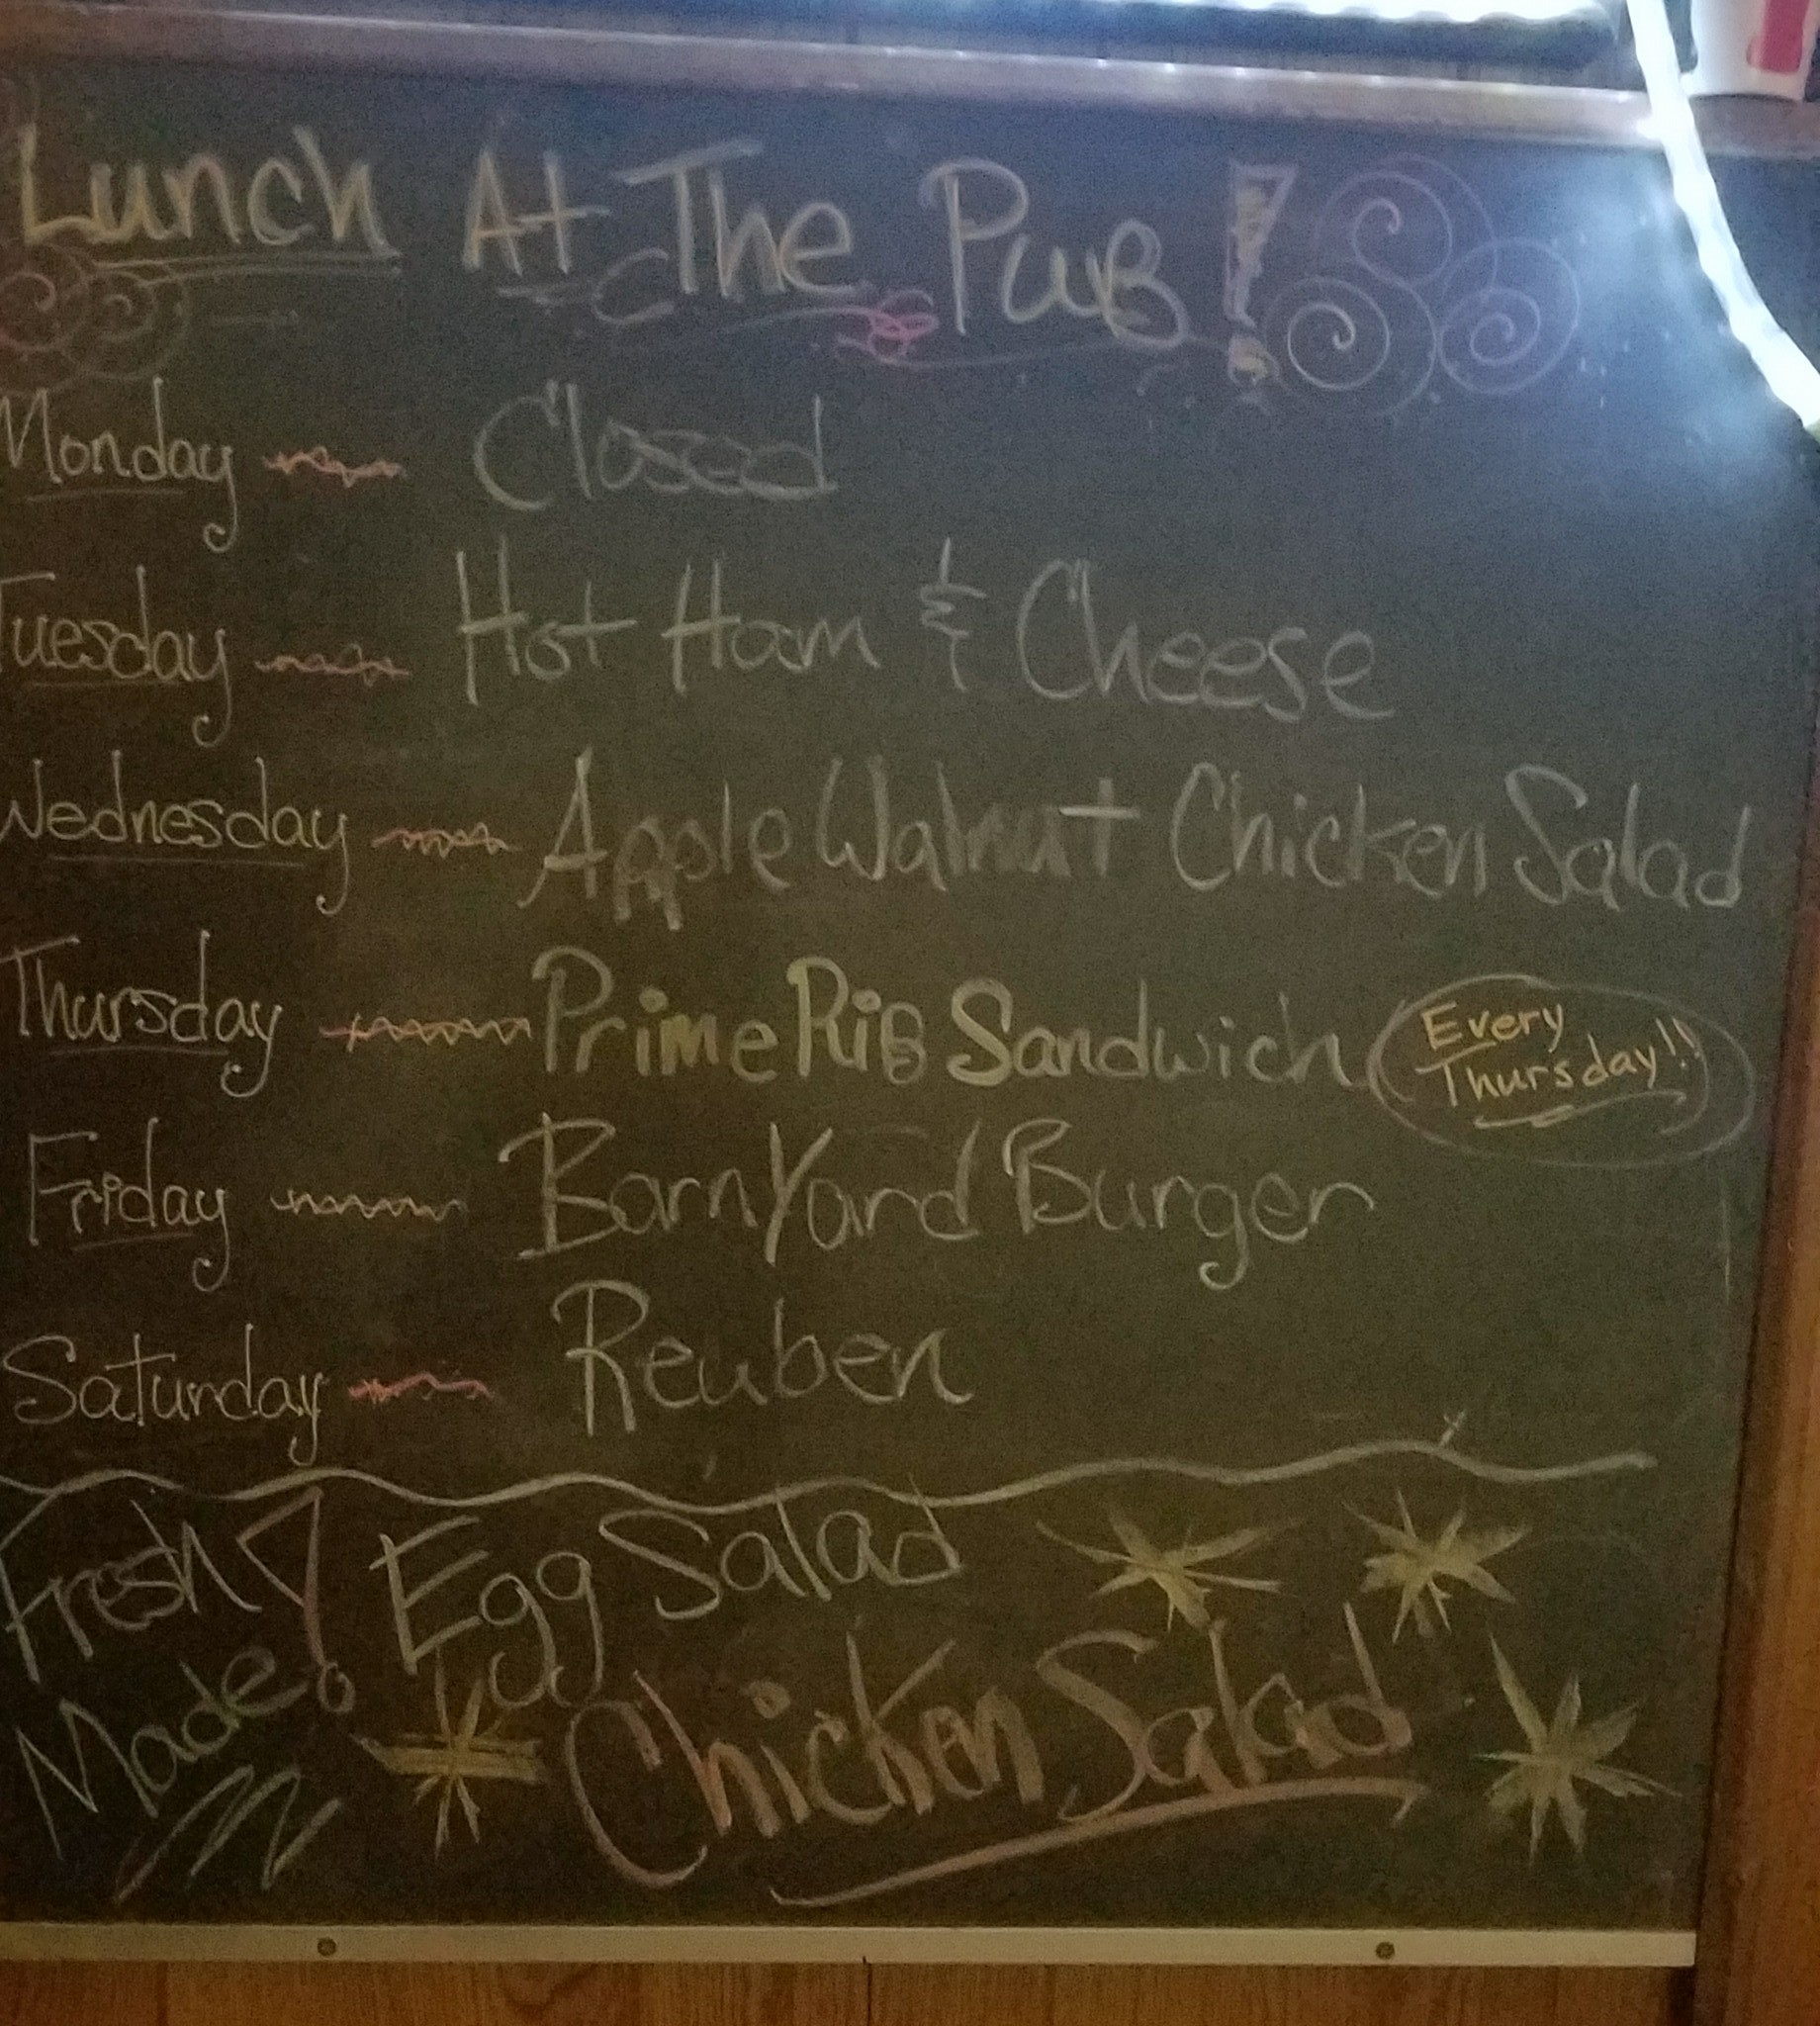 Lunch At The Pub!
Monday Closed
Tuesday Hot Ham & Cheese
Wednesday Apple Walnut Chicken Salad
Thursday Prime Rib Sandwich
Every
Thursday!!
Friday BarnYard Burger
Saturday Reuben
Fresh
Made!
Egg Salad
Chicken Salad